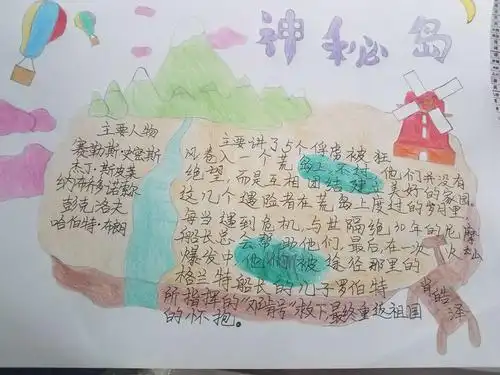 神秘岛
主要人物
赛勒斯·史密斯
杰丁·斯皮莱
纳布·乔布诺
彭克洛夫
哈伯特·布朗
主要讲了5个俘虏被狂
风卷入一个荒岛上,不过,他们并没有
绝望,而是互相团结,建立美好的家园,
这几个遇险者在荒岛上度过的岁月里,
每当遇到危机,与世隔绝30年的尼摩
船长总会帮助他们,最后,在一次火山
爆发中,他们被途径那里的
格兰特船长的儿子罗伯特
所指挥的“邓肯号”救下,最终重返祖国
的怀抱。
皓泽